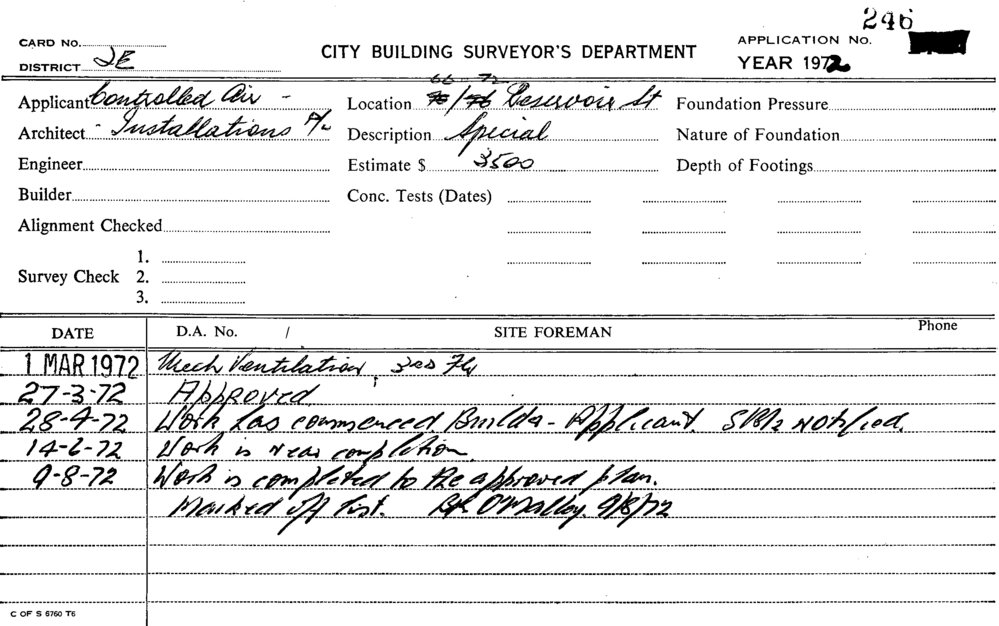 246
CARD No.
CITY BUILDING SURVEYOR'S DEPARTMENT
APPLICATION No.
DISTRICT 2E
YEAR 1972
66 - 72
Applicant Controlled Air -
Location / Reservoir St
Foundation Pressure
Architect - Installations P/L
Description Special
Nature of Foundation
Engineer
Estimate $ 3500
Depth of Footings
Builder
Conc. Tests (Dates)
Alignment Checked
1.
Survey Check 2.
3.
DATE D.A. No. / SITE FOREMAN Phone
1 MAR 1972 Mech Ventilation, 3rd Flr
27-3-72 Approved
28-4-72 Work has commenced Builder - Applicant. notified.
14-6-72 Work is near completion.
9-8-72 Work is completed to the approved plan.
Marked off list. O'Malley. 9/8/72
C OF S 6760 T6